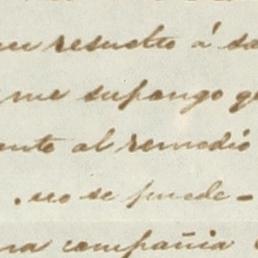 resuelto á sa
me supongo qe
ente al remedio
no se puede -
na compañia